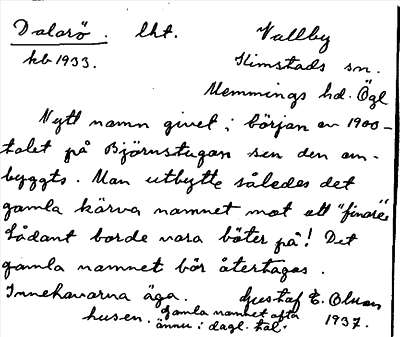 Dalarö. lht. Vallby
kb 1933. Kimstads sn.
Memmings hd. Ögl
Nytt namn givet i början av 1900-
talet på Björnstugan sen den om-
byggts. Man utbytte således det
gamla kärva namnet mot ett "finare"
Sådant borde vara böter på! Det
gamla namnet bör återtagas.
Innehavarna äga. Gustaf E. Olson
husen. Gamla namnet ofta 1937.
ännu i dagl. tal.